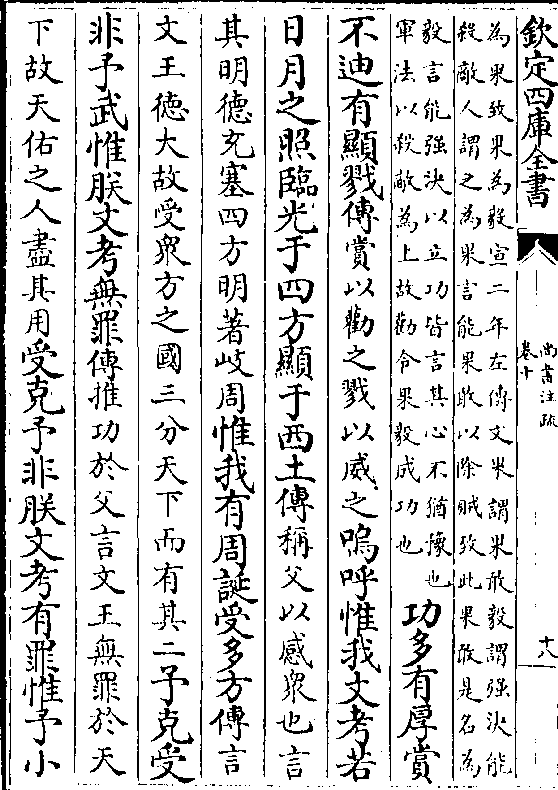 欽定四庫全書
尚書注疏
卷十
十八
為果致果為毅宣二年左傳文果謂果敢毅謂強決能
殺敵人謂之為果言能果敢以除賊致此果敢是名為
毅言能強決以立功皆言其心不猶豫也
軍法以殺敵為上故勸令果毅成功也
功多有厚賞
不迪有顯戮傳賞以勸之戮以威之嗚呼惟我文考若
日月之照臨光于四方顯于西土傳稱父以感衆也言
其明德充塞四方明著岐周惟我有周誕受多方傳言
文王德大故受衆方之國三分天下而有其二予克受
非予武惟朕文考無罪傳推功於父言文王無罪於天
下故天佑之人盡其用受克予非朕文考有罪惟予小